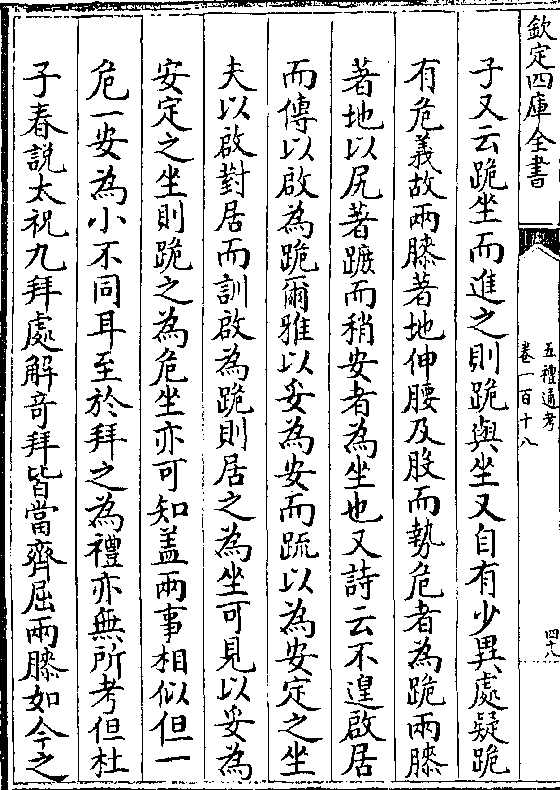 欽定四庫全書
五禮通考
卷一百十八
四八
子又云跪坐而進之則跪與坐又自有少異處疑跪
有危義故兩膝著地伸腰及股而勢危者為跪兩膝
著地以尻著蹠而稍安者為坐也又詩云不遑啟居
而傳以啟為跪爾雅以妥為安而疏以為安定之坐
夫以啟對居而訓啟為跪則居之為坐可見以妥為
安定之坐則跪之為危坐亦可知盖兩事相似但一
危一安為小不同耳至於拜之為禮亦無所考但杜
子春說太祝九拜處解竒拜皆當齊屈兩膝如今之